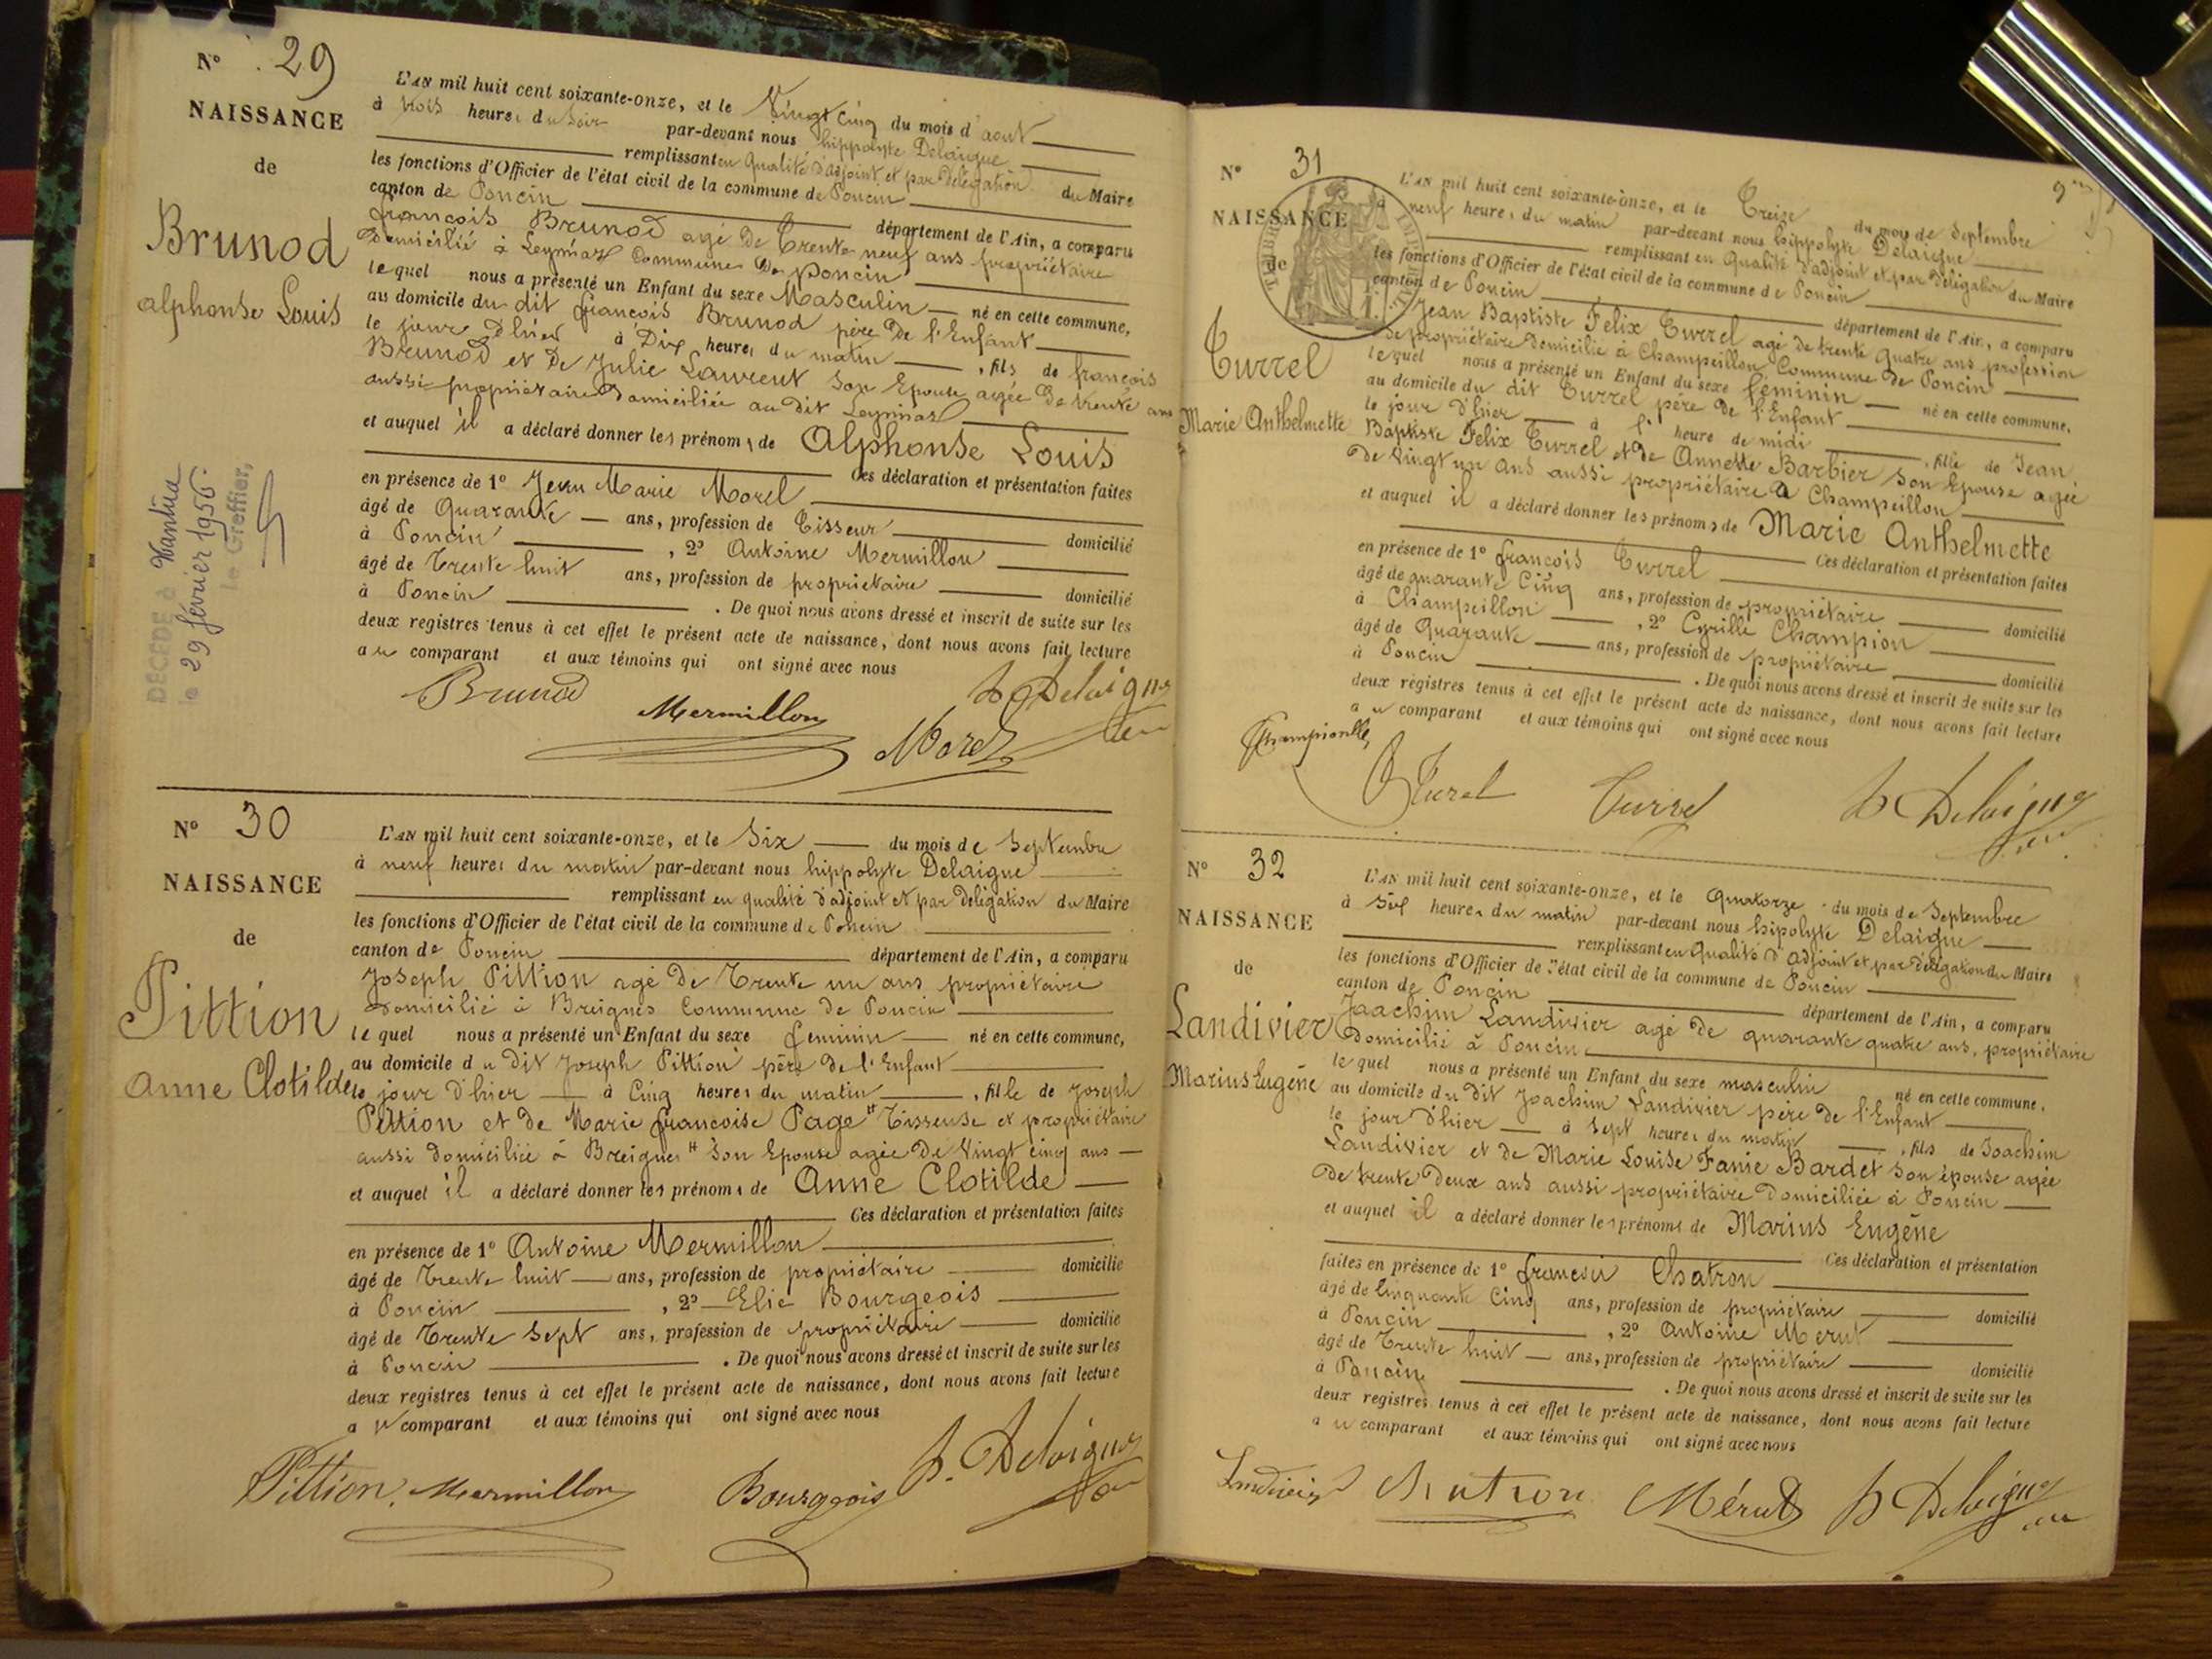 N° 29
NAISSANCE
de
Brunod
alphonse Louis
DÉCÉDÉ à Nantua
le 29 février 1956
le Greffier,
L'AN mil huit cent soixante-onze, et le Vingt Cinq du mois d'aout
à trois heures du soir par-devant nous hippolyte Delaigue
remplissant en qualité d'adjoint et par délégation du Maire
les fonctions d'Officier de l'état civil de la commune de Poncin
canton de Poncin département de l'Ain, a comparu
françois Brunod agé de Trente neuf ans propriétaire
domicilié à Leymiat Commune de poncin
lequel nous a présenté un Enfant du sexe Masculin né en cette commune,
au domicile du dit françois Brunod père de l'Enfant
le jour d'hier à Dix heures du matin, fils de françois
Brunod et de Julie Laurent son Epouse agée de trente ans
aussi propriétaire domiciliée au dit Leymiat
et auquel il a déclaré donner les prénoms de Alphonse Louis
Ces déclaration et présentation faites
en présence de 1° Jean Marie Morel
âgé de Quarante ans, profession de Tisseur domicilié
à Poncin, 2° Antoine Mermillon
âgé de Trente huit ans, profession de propriétaire domicilié
à Poncin. De quoi nous avons dressé et inscrit de suite sur les
deux registres tenus à cet effet le présent acte de naissance, dont nous avons fait lecture
au comparant et aux témoins qui ont signé avec nous
Brunod Mermillon Morel h Delaigue
N° 30
NAISSANCE
de
Pittion
Anne Clotilde
L'AN mil huit cent soixante-onze, et le Six du mois de Septembre
à neuf heures du matin par-devant nous hippolyte Delaigue
remplissant en qualité d'adjoint et par délégation du Maire
les fonctions d'Officier de l'état civil de la commune de Poncin
canton de Poncin département de l'Ain, a comparu
Joseph Pittion agé de Trente un ans propriétaire
domicilié à Breignes Commune de Poncin
lequel nous a présenté un Enfant du sexe feminin né en cette commune,
au domicile du dit Joseph Pittion père de l'Enfant
le jour d'hier à Cinq heures du matin, fille de Joseph
Pittion et de Marie françoise Page # Tisseuse et propriétaire
aussi domiciliée à Breignes # son Epouse agée de Vingt cinq ans
et auquel il a déclaré donner les prénoms de Anne Clotilde
Ces déclaration et présentation faites
en présence de 1° Antoine Mermillon
âgé de Trente huit ans, profession de propriétaire domicilié
à Poncin, 2° Elie Bourgeois
âgé de Trente Sept ans, profession de propriétaire domicilié
à Poncin. De quoi nous avons dressé et inscrit de suite sur les
deux registres tenus à cet effet le présent acte de naissance, dont nous avons fait lecture
au comparant et aux témoins qui ont signé avec nous
Pittion. Mermillon Bourgeois h. Delaigue
N° 31
NAISSANCE
de
Turrel
Marie Anthelmette
L'AN mil huit cent soixante-onze, et le Treize du mois de Septembre
à neuf heures du matin par-devant nous hippolyte Delaigue
remplissant en qualité d'adjoint et par délégation du Maire
les fonctions d'Officier de l'état civil de la commune de Poncin
canton de Poncin département de l'Ain, a comparu
Jean Baptiste Félix Turrel agé de trente quatre ans profession
de propriétaire domicilié à Champeillon Commune de Poncin
lequel nous a présenté un Enfant du sexe féminin né en cette commune,
au domicile du dit Turrel père de l'Enfant
le jour d'hier à heure de midi, fille de Jean
Baptiste Felix Turrel et de Annette Barbier son Epouse agée
de Vingt un ans aussi propriétaire à Champeillon
et auquel il a déclaré donner les prénoms de Marie Anthelmette
Ces déclaration et présentation faites
en présence de 1° françois Turrel
âgé de quarante Cinq ans, profession de propriétaire domicilié
à Champeillon, 2° Cyrille Champion
âgé de Quarante ans, profession de propriétaire domicilié
à Poncin. De quoi nous avons dressé et inscrit de suite sur les
deux registres tenus à cet effet le présent acte de naissance, dont nous avons fait lecture
au comparant et aux témoins qui ont signé avec nous
Turel Turrel h Delaigue
N° 32
NAISSANCE
de
Landivier
Marius Eugène
L'AN mil huit cent soixante-onze, et le Quatorze du mois de Septembre
à Six heures du matin par-devant nous hipolyte Delaigue
remplissant en Qualité d'adjoint et par délégation du Maire
les fonctions d'Officier de l'état civil de la commune de Poncin
canton de Poncin département de l'Ain, a comparu
Joachim Landivier agé de quarante quatre ans, propriétaire
domicilié à Poncin
lequel nous a présenté un Enfant du sexe masculin né en cette commune,
au domicile du dit Joachim Landivier père de l'Enfant
le jour d'hier à Sept heures du matin, fils de Joachim
Landivier et de Marie Louise Fanie Bardet son épouse agée
de trente deux ans aussi propriétaire domiciliée à Poncin
et auquel il a déclaré donner les prénoms de Marius Eugène
Ces déclaration et présentation
faites en présence de 1° françois Chatron
âgé de Cinquante Cinq ans, profession de propriétaire domicilié
à Poncin, 2° Antoine Merut
âgé de Trente huit ans, profession de propriétaire domicilié
à Poncin. De quoi nous avons dressé et inscrit de suite sur les
deux registres tenus à cet effet le présent acte de naissance, dont nous avons fait lecture
au comparant et aux témoins qui ont signé avec nous
Landivier Chatron Mérut h Delaigue